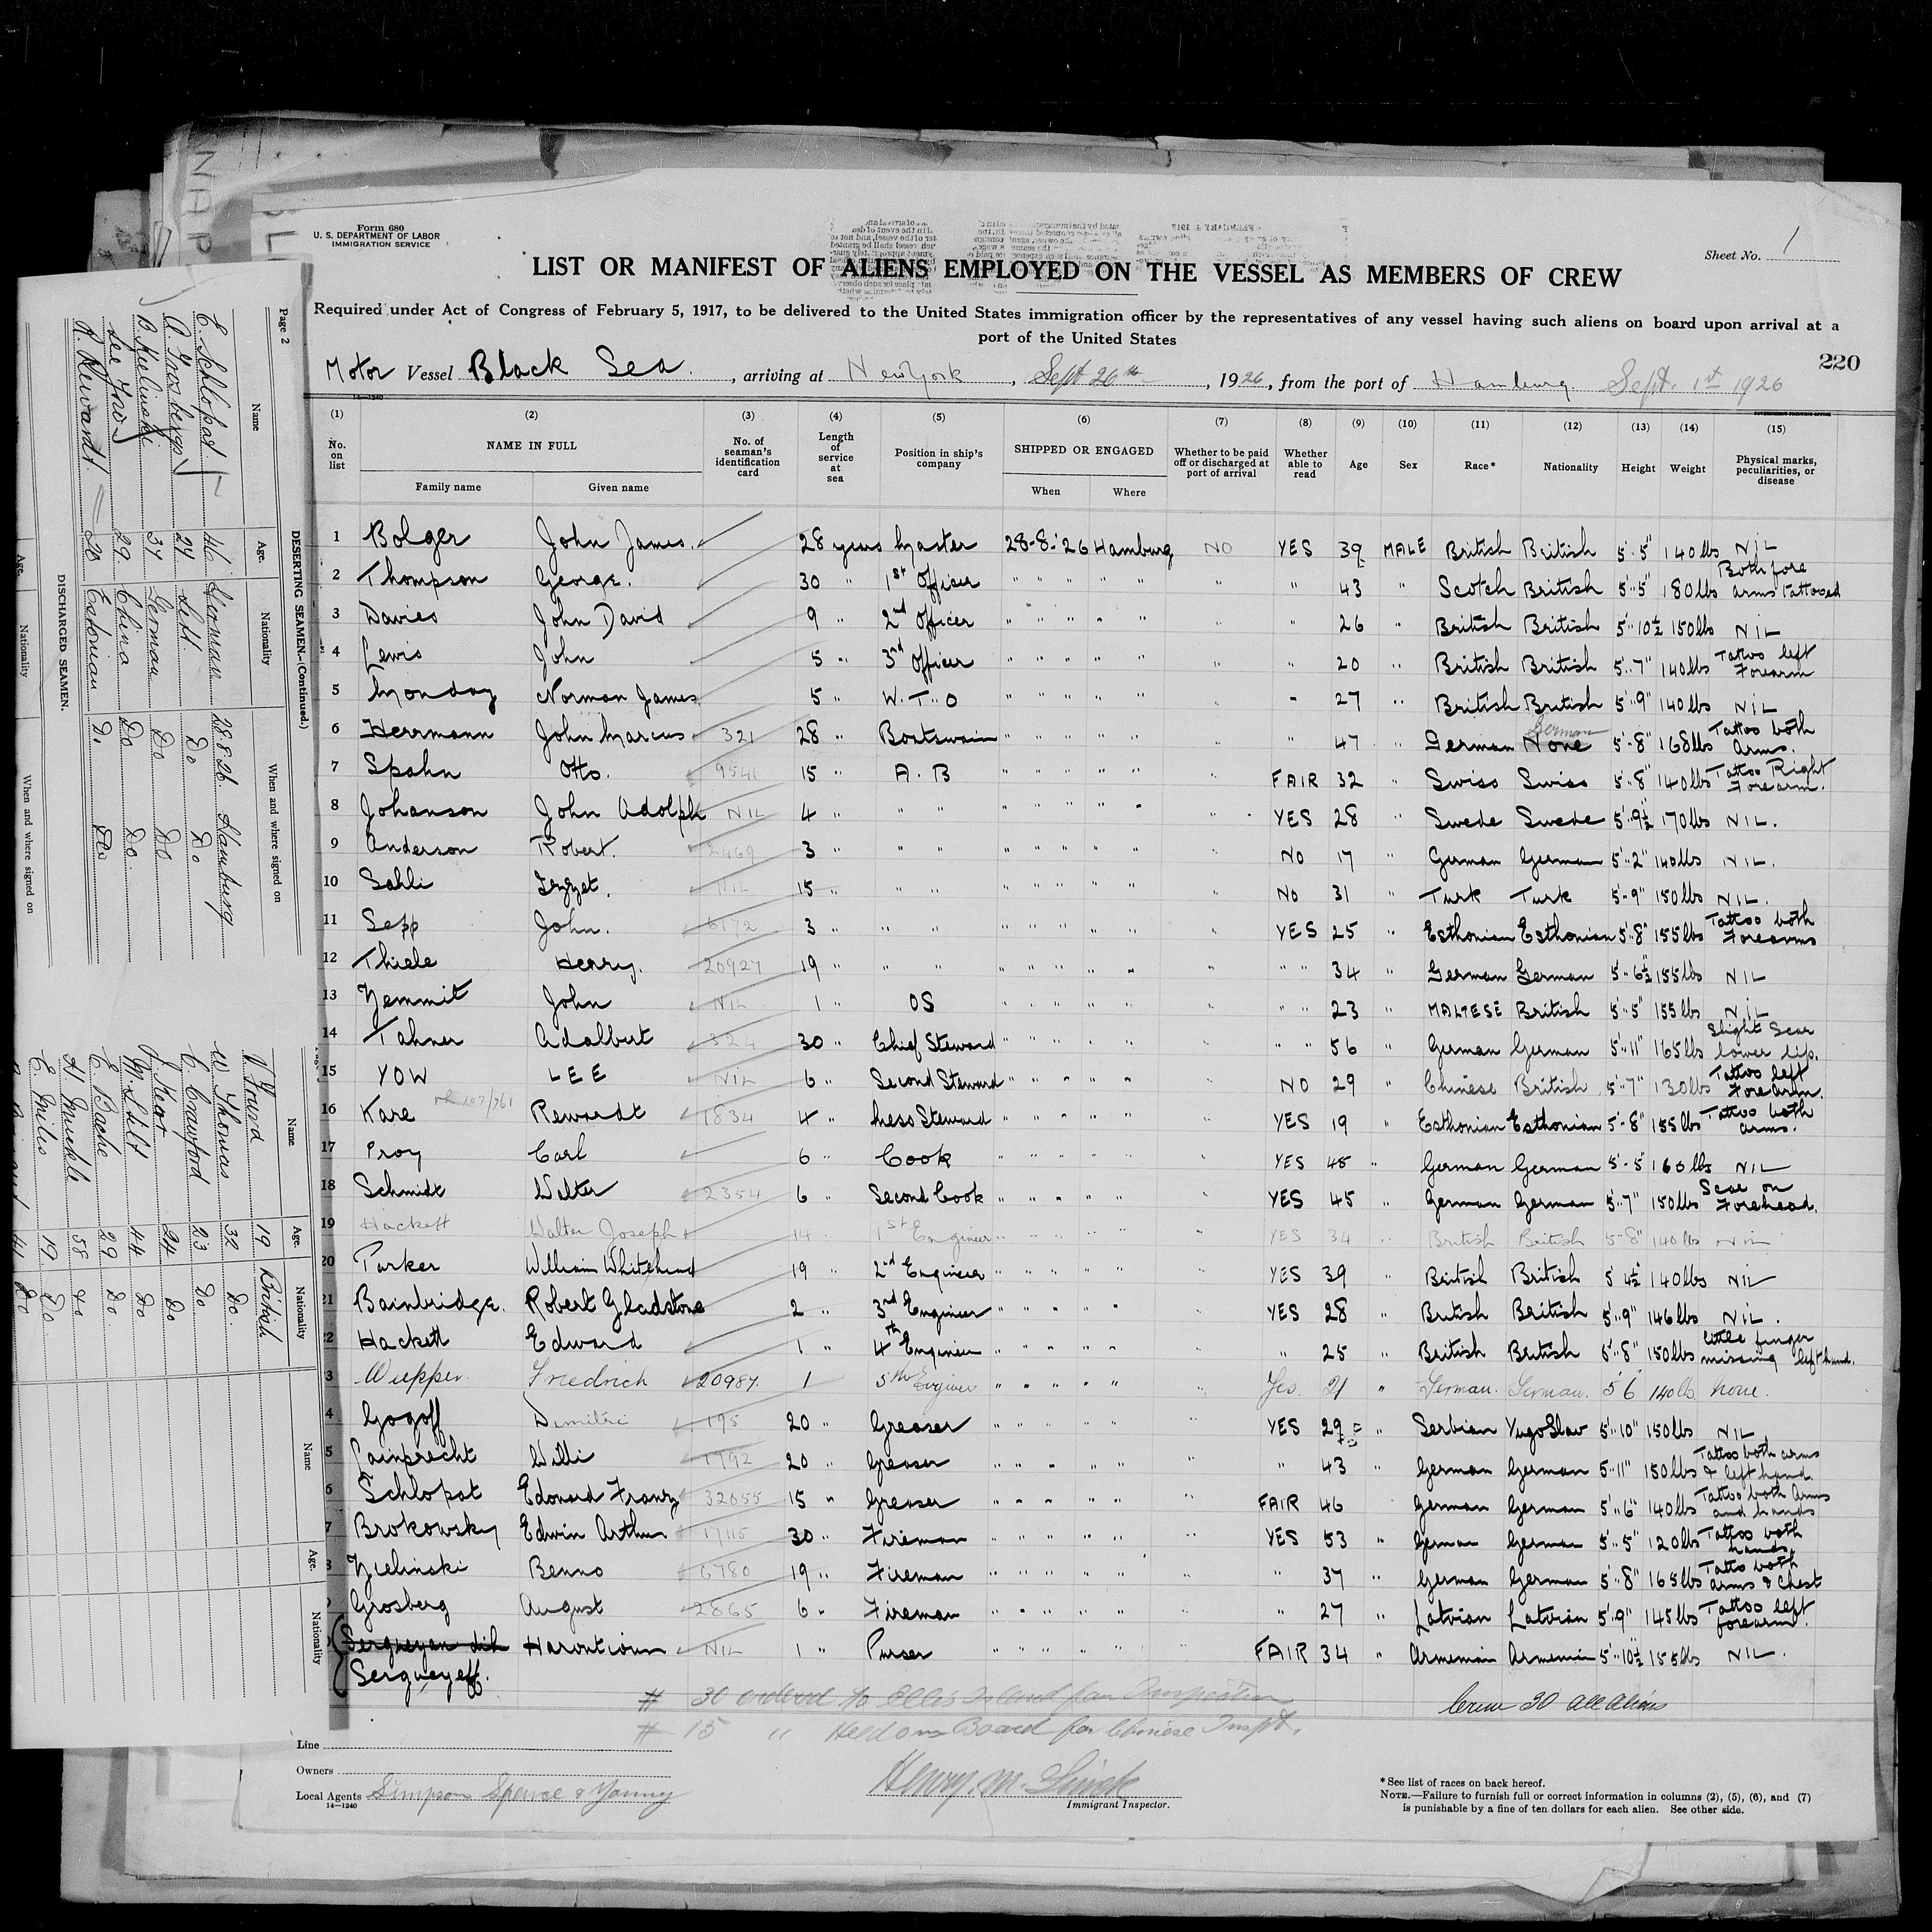 Form 680
U. S. DEPARTMENT OF LABOR
IMMIGRATION SERVICE
Sheet No. 1
LIST OR MANIFEST OF ALIENS EMPLOYED ON THE VESSEL AS MEMBERS OF CREW
Required under Act of Congress of February 5, 1917, to be delivered to the United States immigration officer by the representatives of any vessel having such aliens on board upon arrival at a
port of the United States
220
Motor Vessel Black Sea, arriving at New York, Sept 26th, 1926, from the port of Hamburg Sept. 1st 1926
14—1240
(1) (2) (3) (4) (5) (6) (7) (8) (9) (10) (11) (12) (13) (14) (15)
No. on list NAME IN FULL No. of seaman's identification card Length of service at sea Position in ship's company SHIPPED OR ENGAGED Whether to be paid off or discharged at port of arrival Whether able to read Age Sex Race* Nationality Height Weight Physical marks, peculiarities, or disease
Family name Given name When Where
1 Bolger John James 28 years Master 28-8-'26 Hamburg NO YES 39 MALE British British 5'·5" 140 lbs NIL
2 Thompson George. 30 " 1st Officer " " " " " " " 43 " Scotch British 5'·5" 180 lbs Both fore arms tattooed
3 Davies John David 9 " 2nd Officer " " " " " " " 26 " British British 5'·10½ 150 lbs NIL
4 Lewis John 5 " 3rd Officer " " " " " " " 20 " British British 5'·7" 140 lbs Tattoo left Forearm
5 Monday Norman James 5 " W.T.O " " " " " " " 27 " British British 5'·9" 140 lbs NIL
6 Herrmann John Marcus 321 28 " Boatswain " " " " " " " 47 " German None German 5'-8" 168 lbs Tattoo both Arms.
7 Spahn Otto. 9541 15 " A.B " " " " " " FAIR 32 " Swiss Swiss 5'·8" 140 lbs Tattoo Right Forearm.
8 Johanson John Adolph NIL 4 " " " " " " " " " YES 28 " Swede Swede 5'·9½ 170 lbs NIL.
9 Anderson Robert. 2469 3 " " " " " " " " " No 17 " German German 5'·2" 140 lbs NIL.
10 Sahli Izzet. NIL 15 " " " " " " " " " No 31 " Turk Turk 5'-9" 150 lbs NIL.
11 Sepp John. 6172 3 " " " " " " " " " YES 25 " Esthonian Esthonian 5'·8" 155 lbs Tattoo both Forearms
12 Thiele Henry. 20927 19 " " " " " " " " " " " 34 " German German 5'·6½ 155 lbs NIL
13 Zemmit John NIL 1 " OS " " " " " " " " 23 " MALTESE British 5'·5" 155 lbs NIL
14 Tahner Adalbert 324 30 " Chief Steward " " " " " " " " 56 " German German 5'·11" 165 lbs Slight Scar lower lip.
15 YOW LEE NIL 6 " Second Steward " " " " " NO 29 " Chinese British 5'·7" 130 lbs Tattoo left Forearm.
16 Kare Rewardt 1834 4 " Mess Steward " " " " " YES 19 " Esthonian Esthonian 5'·8" 155 lbs Tattoo both arms.
17 Proy Carl 6 " Cook " " " " " " YES 45 " German German 5'·5 160 lbs NIL
18 Schmidt Walter 2354 6 " Second Cook " " " " " " YES 45 " German German 5'·7" 150 lbs Scar on Forehead.
19 Hackett Walter Joseph 14 " 1st Engineer " " " " " YES 34 " British British 5-8" 140 lbs Nil
20 Parker William Whitehead 19 " 2nd Engineer " " " " " " YES 39 " British British 5' 4½ 140 lbs NIL
21 Bainbridge. Robert Gladstone 2 " 3rd Engineer " " " " YES 28 " British British 5'·9" 146 lbs NIL.
22 Hackett Edward 1 " 4th Engineer " " " " " " 25 " British British 5'·8" 150 lbs little finger missing left hand.
3 Wupper. Friedrich 20987. 1 5th Engineer " " " " " " Yes. 21 " German. German. 5' 6 140 lb None.
4 Gogoff Dimitri 195 20 " Greaser " " " " " " YES 29 " Serbian YugoSlav 5'·10" 150 lbs NIL
5 Painprecht Willi 1792 20 " Greaser " " " " " " " 43 " German German 5·11" 150 lbs Tattoo both arms & left hand
6 Schlopat Edouard Franz 32055 15 " Greaser " " " " " " FAIR 46 German German 5'·6" 140 lbs Tattoo both Arms and hands
7 Brokowsky Edwin Arthur 17115 30 " Fireman " " " " " " YES 53 " German German 5'·5" 120 lbs Tattoo both hands.
8 Zielinski Benno 6780 19 " Fireman " " " " " " " 37 " German German 5'·8" 165 lbs Tatto both arms & Chest
Grosberg August 2865 6 " Fireman " " " " " " " 27 " Latvian Latvian 5'·9" 145 lbs Tattoo left forearm.
Harontioun NIL 1 " Purser " " " " " " FAIR 34 " Armenian Armenian 5'·10½ 155 lbs NIL.
Sergueyeff.
# 30 ordered to Ellis Island for Inspection
Crew 30 all aliens
# 15 " Held on Board for Chinese Inspt.
Line
Owners
Local Agents Simpson Spence & Young
14—1240
Immigrant Inspector.
*See list of races on back hereof.
NOTE.—Failure to furnish full or correct information in columns (2), (5), (6), and (7)
is punishable by a fine of ten dollars for each alien. See other side.
Page 2
DESERTING SEAMEN.—(Continued.)
Name Age. Nationality When and where signed on
E. Schlopat. 46 German 28.8.26. Hamburg
A. Grosbergs 27 Lett. Do Do
B. Zielinski 37 German Do Do
Lee Yow 29. China Do Do.
R. Rewardt 20 Estonian D. Do
DISCHARGED SEAMEN.
Age. Nationality When and where signed on
Name Age. Nationality
19 British
W Thomas 32 Do.
C. Crawford 23 Do
J. Kear 24 Do
44 Do
E Bache 29 Do.
H. Muckle 58 Do
E. Miles 19 Do.
41 Do
Name Age. Nationality